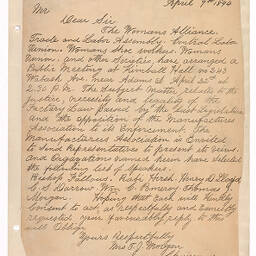 April 9th 1894
Mr
Dear Sir
The Womans Alliance.
Trade and Labor Assembly. Central Labor
Union. Womans Shoe workers. Womans
Union. and other Societies, have arranged a
Public Meeting at Kimball Hall no 243
Wabash Ave near Adams at April 22d at
2.30 P.M. The Subject Matter relates to the
justice, necessity and legality of the
Factory Law Passed By the Last Legislature
and the opposition of the Manufacturers
Association to its Enforcement. The
Manufacturers Association is Envited
to Send Representatives to present its views.
and Orgazations named herin have selected
the following list of Speakers.
Bishop Fallows. Rabi Hirsh. Henry D. Lloyd
C. S. Darrow Wm. C. Pomeroy Thomas J.
Morgan. Hoping that each will Kindly
Consent to act as Respectfully and Earnestly
requested your favourable reply to this
will Oblige
Yours Respectfully
Mrs T. J. Morgan